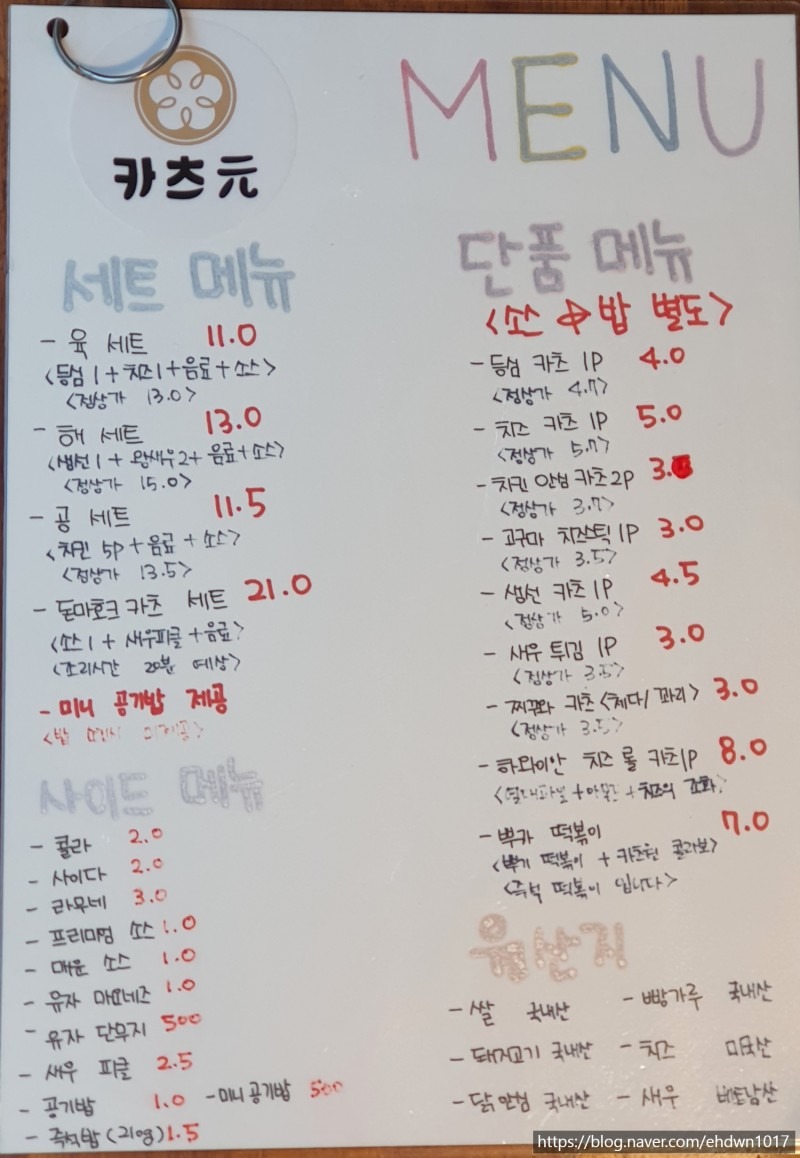 카츠元
MENU
세트 메뉴
- 육 세트 11.0
<등심 1 + 치즈 1 + 음료 + 소스>
<정상가 13.0>
- 해 세트 13.0
<생선 1 + 왕새우 2 + 음료 + 소스>
<정상가 15.0>
- 공 세트 11.5
<치킨 5P + 음료 + 소스>
<정상가 13.5>
- 돈마호크 카츠 세트 21.0
<소스 1 + 새우피클 + 음료>
<조리시간 20분 예상>
- 미니 공기밥 제공
사이드 메뉴
- 콜라 2.0
- 사이다 2.0
- 라무네 3.0
- 프리미엄 소스 1.0
- 매운 소스 1.0
- 유자 마요네즈 1.0
- 유자 단무지 500
- 새우 피클 2.5
- 공기밥 1.0 - 미니 공기밥 500
- 즉석밥 (210g) 1.5
단품 메뉴
<소스 밥 별도>
- 등심 카츠 1P 4.0
<정상가 4.7>
- 치즈 카츠 1P 5.0
<정상가 5.7>
- 치킨 안심 카츠 2P
<정상가 3.7>
- 고구마 치즈스틱 1P 3.0
<정상가 3.5>
- 생선 카츠 1P 4.5
<정상가 5.0>
- 새우 튀김 1P 3.0
<정상가 3.5>
- 찌꾸와 카츠 <체다/꽈리> 3.0
<정상가 3.5>
- 하와이안 치즈 롤 카츠 1P 8.0
+ 치즈의 조화>
- 뿌카 떡볶이 7.0
떡볶이 + 카츠원 콜라보>
<즉석 떡볶이 입니다>
원산지
- 쌀 국내산 - 빵가루 국내산
- 돼지고기 국내산 - 치즈 미국산
- 닭안심 국내산 - 새우 베트남산
https://blog.naver.com/ehdwn1017